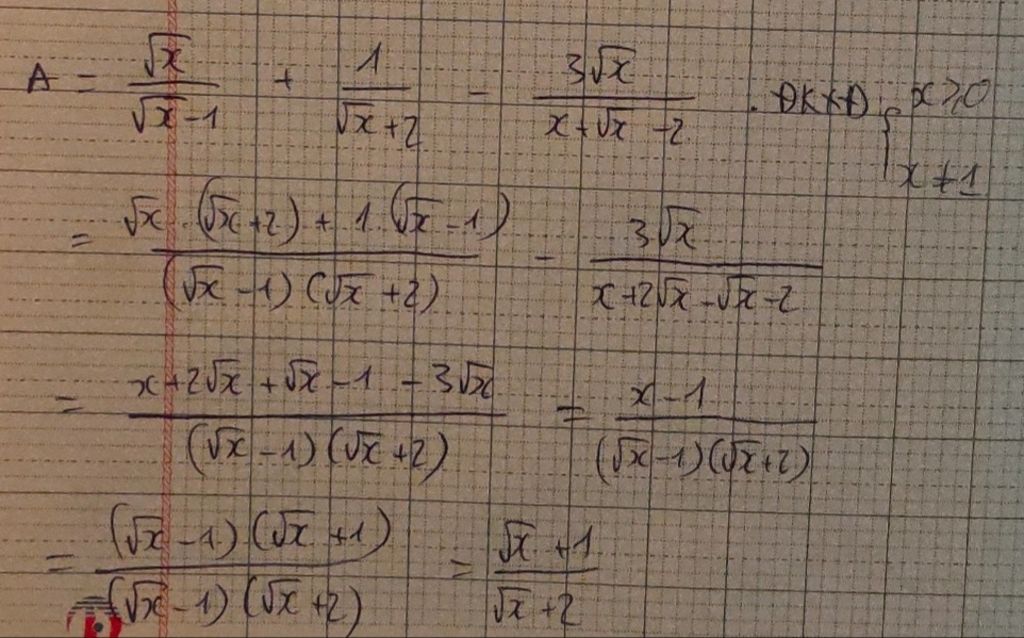 A = √x/(√x-1) + 1/(√x+2) - 3√x/(x+√x-2) . ĐKXĐ { x ≥ 0
x ≠ 1
= (√x.(√x+2) + 1.(√x-1))/((√x-1)(√x+2)) - 3√x/(x+2√x-√x-2)
= (x+2√x+√x-1-3√x)/((√x-1)(√x+2)) = (x-1)/((√x-1)(√x+2))
= ((√x-1)(√x+1))/((√x-1)(√x+2)) = (√x+1)/(√x+2)